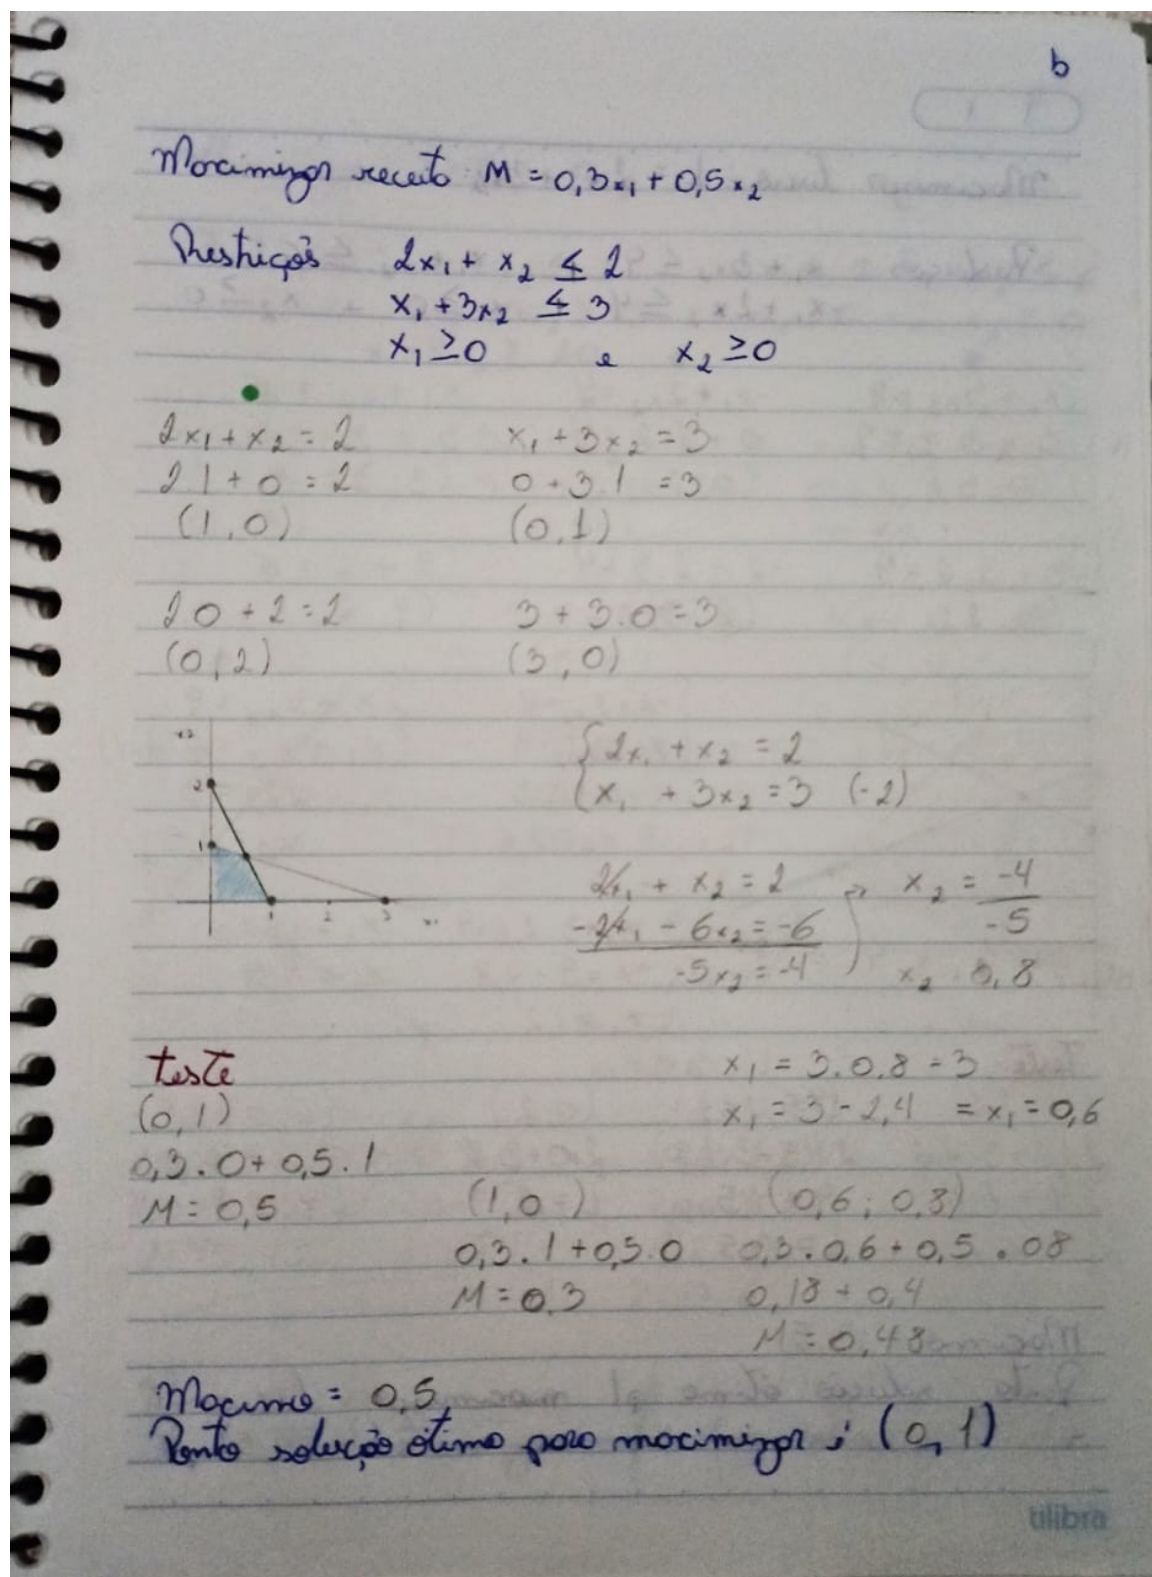 b
Maximizar receita M = 0,3x₁ + 0,5x₂
Restrições 2x₁ + x₂ ≤ 2
x₁ + 3x₂ ≤ 3
x₁ ≥ 0 e x₂ ≥ 0
2x₁ + x₂ = 2 x₁ + 3x₂ = 3
2.1 + 0 = 2 0 + 3.1 = 3
(1,0) (0,1)
2.0 + 2 = 2 3 + 3.0 = 3
(0,2) (3,0)
x₂
2
1
1 2 3 x₁
{2x₁ + x₂ = 2
x₁ + 3x₂ = 3 (-2)
2x₁ + x₂ = 2
-2x₁ - 6x₂ = -6
-5x₂ = -4
x₂ = -4/-5
x₂ 0,8
x₁ = 3.0,8 = 3
x₁ = 3 - 2,4 = x₁ = 0,6
teste
(0,1)
0,3.0 + 0,5.1
M = 0,5
(1,0)
0,3.1 + 0,5.0
M = 0,3
(0,6; 0,8)
0,3.0,6 + 0,5.08
0,18 + 0,4
M = 0,48
Maximo = 0,5
Ponto solução ótimo para maximizar é (0,1)
tilibra